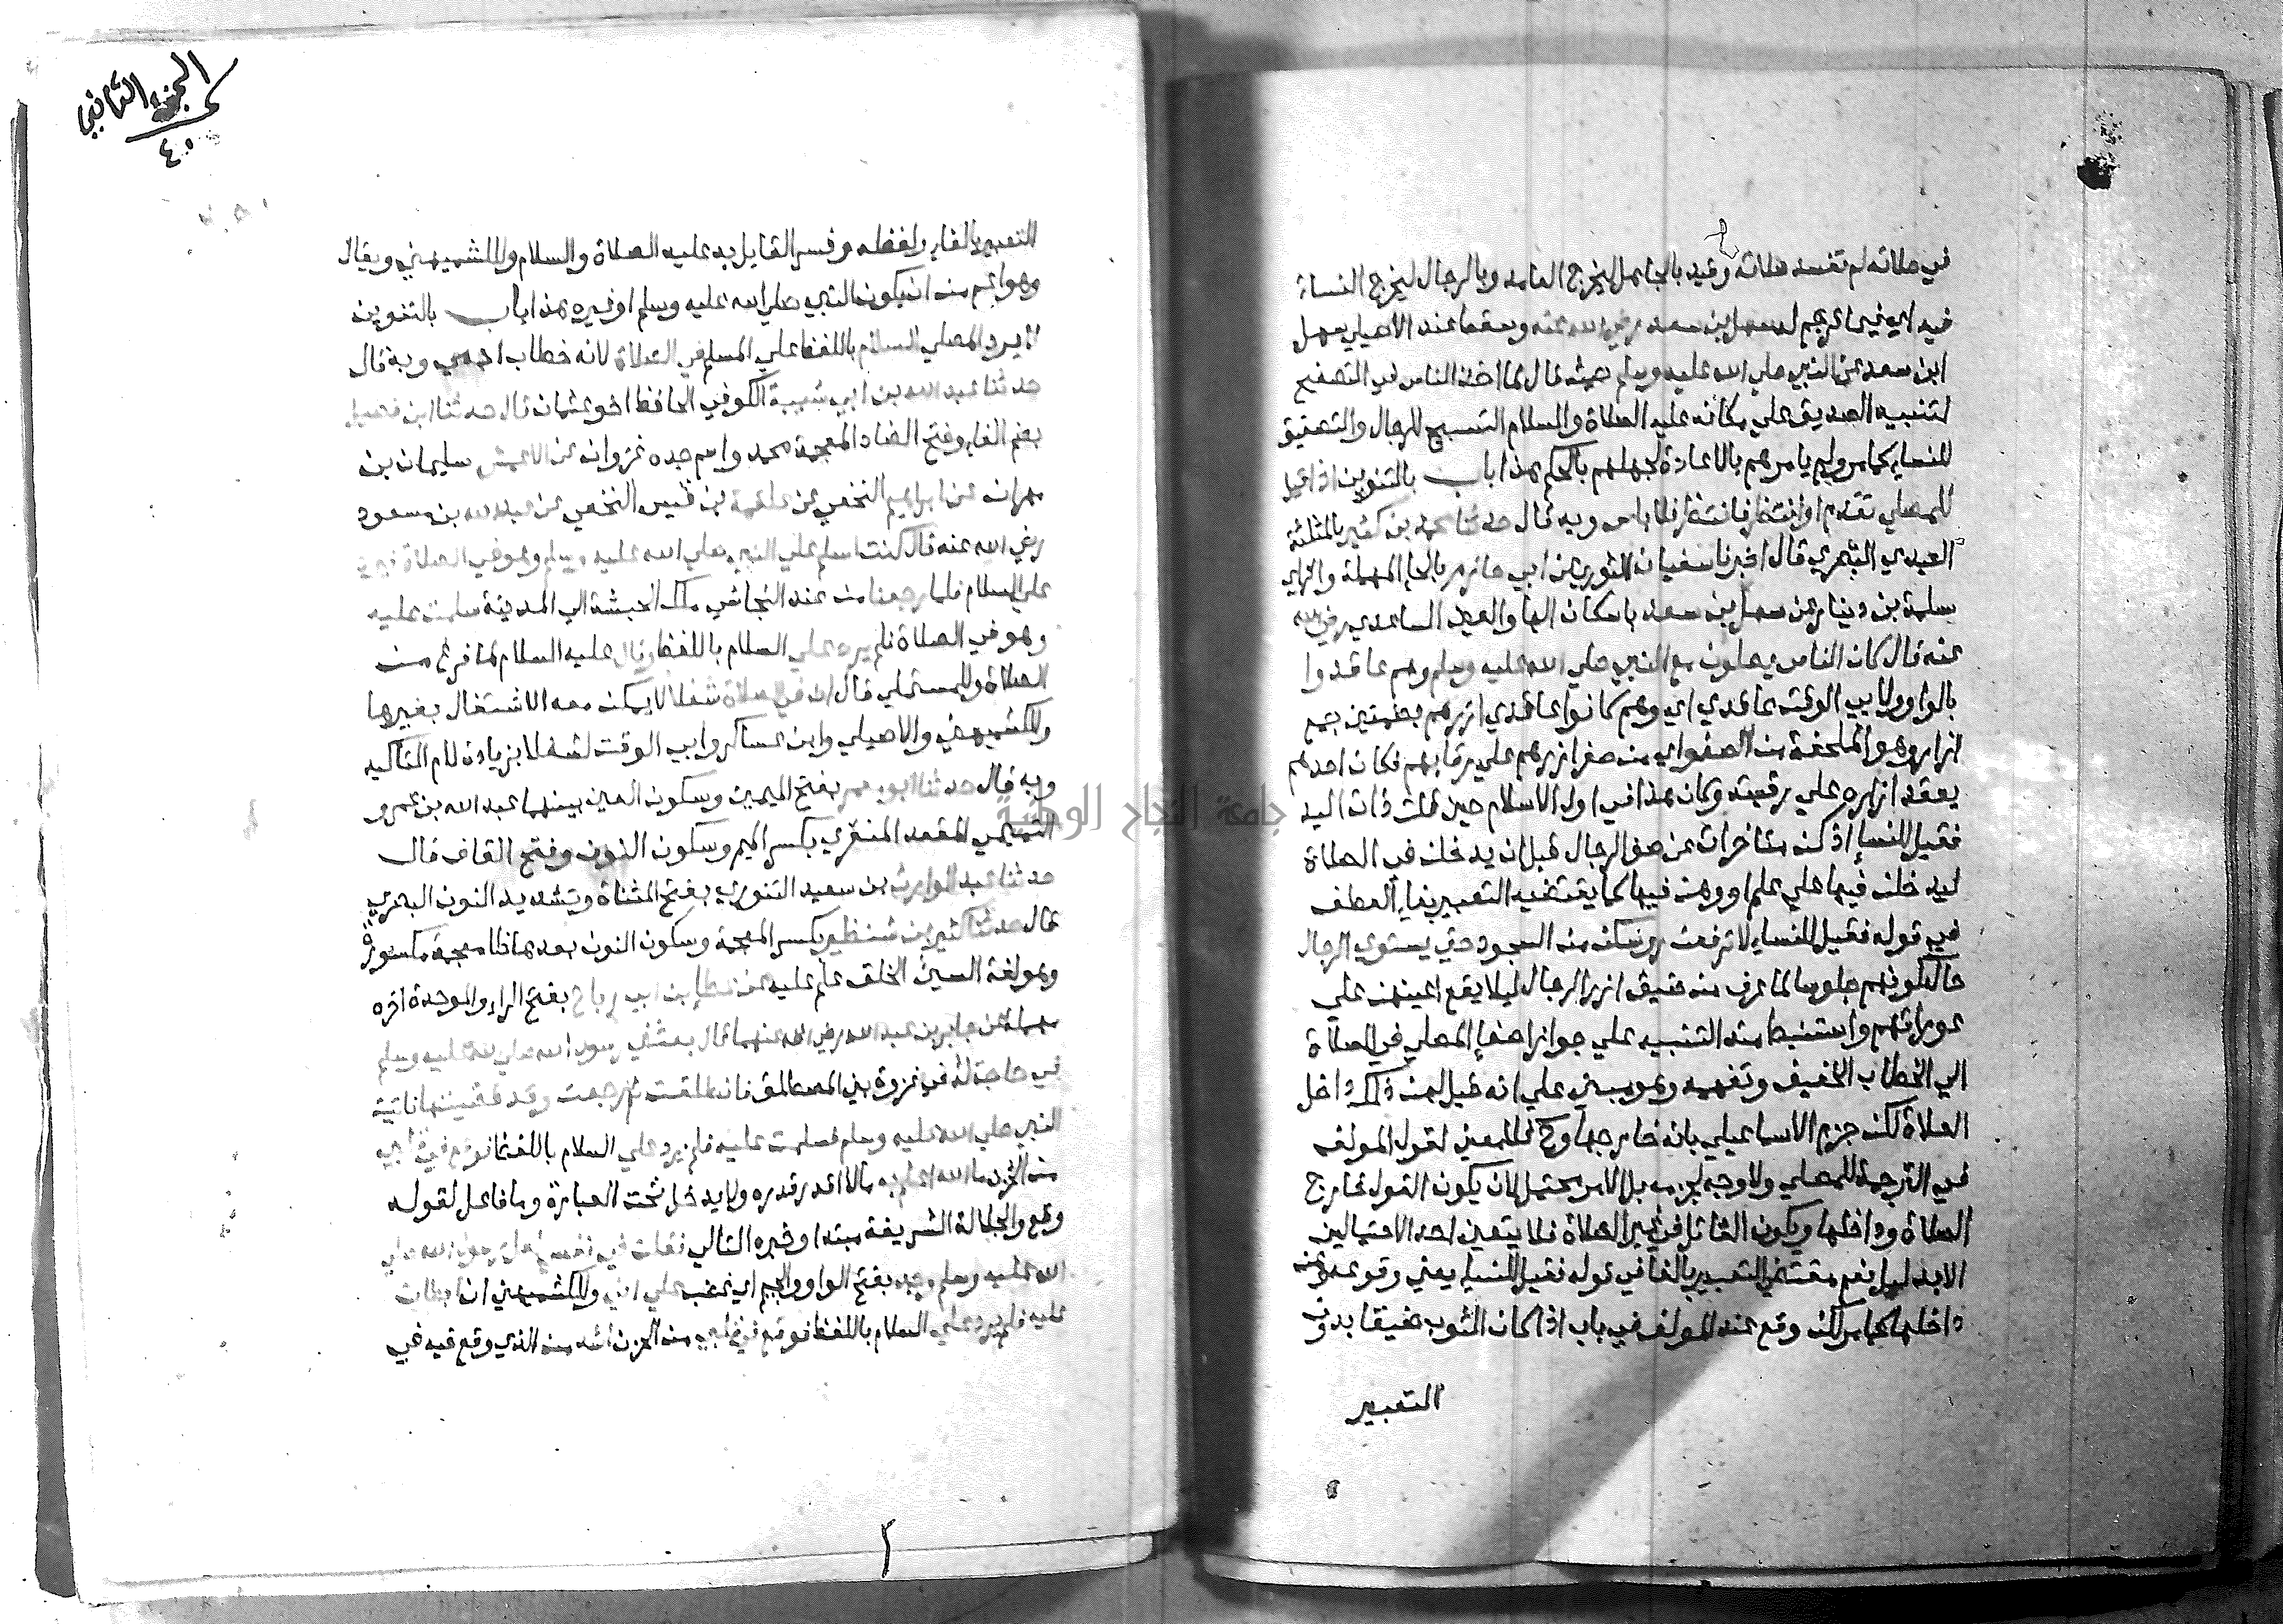 في صلاته لم تفسد صلاته وقيد بالجاهل ليخرج العامد وبالرجال ليخرج النساء
فيه اي فيما ترجم له سهل بن سعد رضي الله عنه وسقط عند الاصيلي سهل
ابن سعد عن النبي صلي الله عليه وسلم حيث قال لما اخذ الناس في التصفيح
لتنبيه الصديق علي مكانه عليه الصلاة والسلام التسبيح للرجال والتصفيق
للنساء كما مر ولم يامرهم بالاعادة لجهلهم بالحكم هذا باب بالتنوين اذا قيل
للمصلي تقدم او انتظر فانتظر فلا باس وبه قال حدثنا محمد بن كثير بالمثلثة
العبدي البصري قال اخبرنا سفيان الثوري عن ابي حازم بالحا المهملة والزاي
سلمة بن دينار عن سهل بن سعد باسكان الها والعين الساعدي رضي الله
عنه قال كان الناس يصلون مع النبي صلي الله عليه وسلم وهم عاقدوا
بالواو ولابي الوقت عاقدي اي وهم كانوا عاقدي ازرهم بضمتين جمع
ازار وهو الملحفة من الصغر اي من صغر ازرهم علي رقابهم فكان احدهم
يعقد ازاره علي رقبته وكان هذا في اول الاسلام حين قلت ذات اليد
فقيل للنساء اذ كن متاخرات عن صف الرجال قبل ان يدخلن في الصلاة
ليدخلن فيها علي علم او وهن فيها كما يقتضيه التعبير بفاء العطف
في قوله فقيل للنساء لا ترفعن روسكن من السجود حتي يستوي الرجال
حال كونهم جلوسا لما عرف من ضيق ازر الرجال ليلا يقع اعينهن علي
عوراتهم واستنبط منه التنبيه علي جواز اصغاء المصلي في الصلاة
الي الخطاب الخفيف وتفهمه وهو مبني علي انه قيل لهن ذلك داخل
الصلاة لكن جزم الاسماعيلي بانه خارجها وح فلا معني لقول المولف
في الترجمة للمصلي ولا وجه لجزمه بل الامر محتمل لان يكون القول خارج
الصلاة وداخلها ويكون القائل في غير الصلاة فلا يتعين احد الاحتمالين
الا بدليل نعم مقتضي التعبير بالفا في قوله فقيل للنساء يعني وقوعه وهن
داخلها كما مر لكن وقع عند المولف في باب اذا كان الثوب ضيقا بدون
التعبير
الجزء الثاني
٤٠٥
التعبير بالفاء ولفظه وفسر القايل به عليه الصلاة والسلام وللكشميهني ويقال
وهو اعم من ان يكون النبي صلي الله عليه وسلم او غيره هذا باب بالتنوين
لا يرد المصلي السلام باللفظ علي المسلم في الصلاة لانه خطاب ادمي وبه قال
حدثنا عبد الله بن ابي شيبة الكوفي الحافظ اخو عثمان قال حدثنا ابن فضيل
بضم الفاء وفتح الضاد المعجمة محمد واسم جده غزوان عن الاعمش سليمان بن
مهران عن ابراهيم النخعي عن علقمة بن قيس النخعي عن عبد الله بن مسعود
رضي الله عنه قال كنت اسلم علي النبي صلي الله عليه وسلم وهو في الصلاة فيرد
علي السلام فلما رجعنا من عند النجاشي ملك الحبشة الي المدينة سلمت عليه
وهو في الصلاة فلم يرد علي السلام باللفظ وقال عليه السلام لما فرغ من
الصلاة وللمستملي قال ان في الصلاة شغلا لا يمكن معه الاشتغال بغيرها
وللكشميهني والاصيلي وابن عساكر وابي الوقت لشغلا بزيادة لام التاكيد
وبه قال حدثنا ابو معمر بفتح الميمين وسكون العين بينهما عبد الله بن عمرو
التميمي المقعد المنقري بكسر الميم وسكون النون وفتح القاف قال
حدثنا عبد الوارث بن سعيد التنوري بفتح المثناة وتشديد النون البصري
قال حدثنا كثير بن شنظير بكسر المعجمة وسكون النون بعدها ظا معجمة مكسورة
وهو لغة السيئ الخلق علم عليه عن عطاء بن ابي رباح بفتح الراء والموحدة اخره
مهملة عن جابر بن عبد الله رضي الله عنهما قال بعثني رسول الله صلي الله عليه وسلم
في حاجة له في غزوة بني المصطلق فانطلقت ثم رجعت وقد قضيتها فاتيت
النبي صلي الله عليه وسلم فسلمت عليه فلم يرد علي السلام باللفظ فوقع في قلبي
من الحزن ما الله اعلم به مالا اقدر قدره ولا يدخل تحت العبارة وما فاعل لقوله
وقع والجلالة الشريفة مبتدا وخبره التالي فقلت في نفسي لعل رسول الله صلي
الله عليه وسلم وجد بفتح الواو والجيم اي غضب علي اني وللكشميهني ان ابطات
عليه فلم يرد علي السلام باللفظ فوقع في قلبي من الحزن اشد من الذي وقع فيه في
٢
جامعة النجاح الوطنية